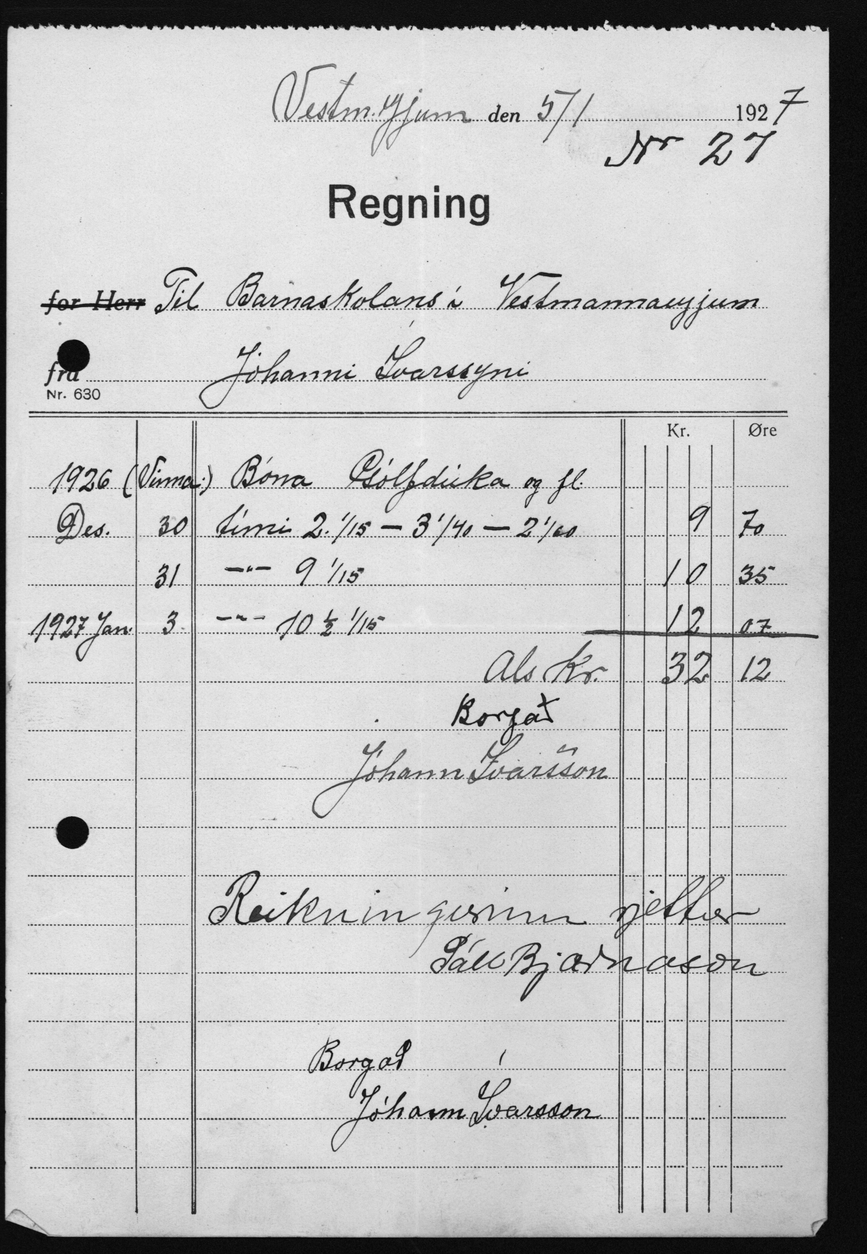 Vestm.eyjum den 5/1 1927
Nr 27
Regning
for Herr Til Barnaskolans í Vestmannaeyjum
fra Jóhanni Ívarssyni
Nr. 630
Kr. Øre
1926 (Vinna) Bóna Gólfdúka og fl.
Des. 30 tími 2. 1/15 — 3 1/40 — 2 1/60 9 70
31 —"— 9 1/15 10 35
1927 Jan 3 —"— 10 ½ 1/15 12 07
Als Kr. 32 12
Borgað
Jóhann Ívarsson
Reikningurinn rjettur
Páll Bjarnason
Borgað
Jóhann Ívarsson